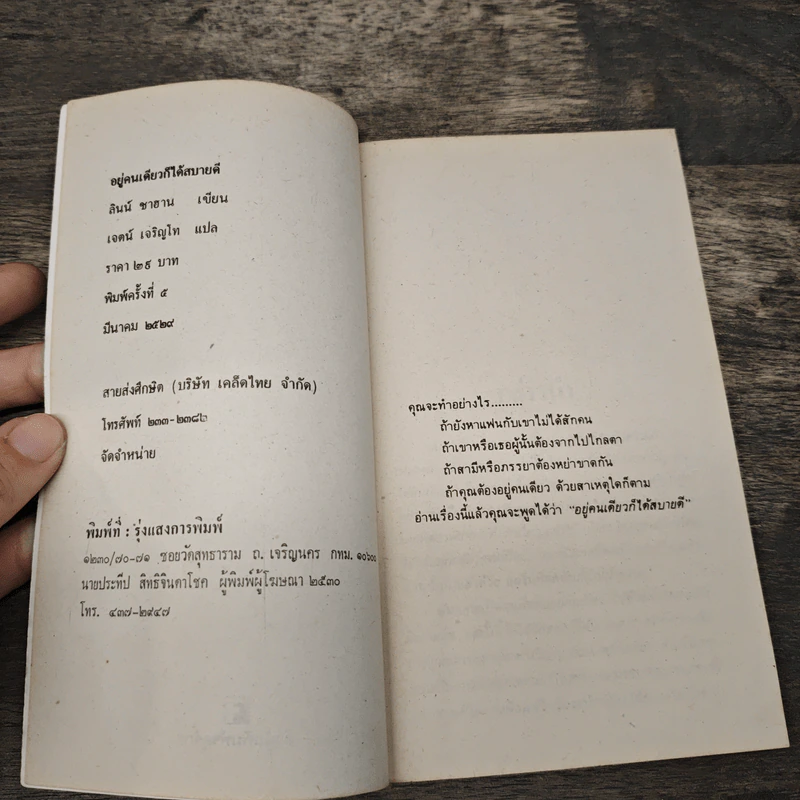 อยู่คนเดียวก็ได้สบายดี
ลินน์ ชาฮาน เขียน
เจตน์ เจริญโท แปล
ราคา ๒๙ บาท
พิมพ์ครั้งที่ ๕
มีนาคม ๒๕๒๙
สายส่งศึกษิต (บริษัท เคล็ดไทย จำกัด)
โทรศัพท์ ๒๓๓-๒๓๘๒
จัดจำหน่าย
พิมพ์ที่ : รุ่งแสงการพิมพ์
๑๒๓๐/๗๐-๗๑ ซอยวัดสุทธาราม ถ. เจริญนคร กทม. ๑๐๖๐๐
นายประทีป สิทธิจินดาโชค ผู้พิมพ์ผู้โฆษณา ๒๕๓๐
โทร. ๔๓๗-๒๙๔๗
คุณจะทำอย่างไร.........
ถ้ายังหาแฟนกับเขาไม่ได้สักคน
ถ้าเขาหรือเธอผู้นั้นต้องจากไปไกลตา
ถ้าสามีหรือภรรยาต้องหย่าขาดกัน
ถ้าคุณต้องอยู่คนเดียว ด้วยสาเหตุใดก็ตาม
อ่านเรื่องนี้แล้วคุณจะพูดได้ว่า "อยู่คนเดียวก็ได้สบายดี"